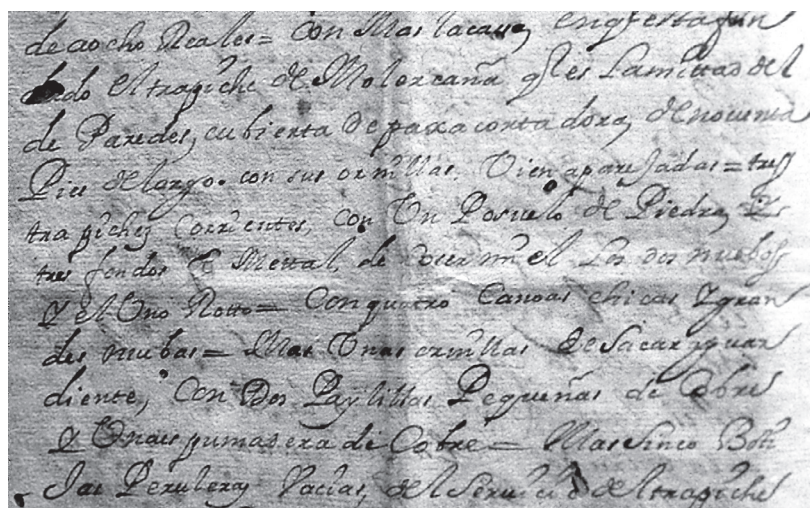 de aocho Reales = Con Mas la casa, en q esta fun
dado el trapiche de Moler caña q es La mittad del
de Paredes, cubierta de paxa cortadora, de nouenta
Pies de largo. con sus ornillas, Vien aparesadas = tres
trapiches Corrientes, con Un Posuelo de Piedra,
tres fondos de Mettal, de coser miel Los dos nuebos
Y el Uno Rotto = Con quatro Canoas chicas Y gran
des nuebas = Mas Unas ornillas de sacar aguar
diente, Con Dos Paylillas Pequeñas de Cobre
Y Una espumadera de Cobre = Mas Sinco Boti
Jas Peruleras Vacias, del Seruicio del trapiche